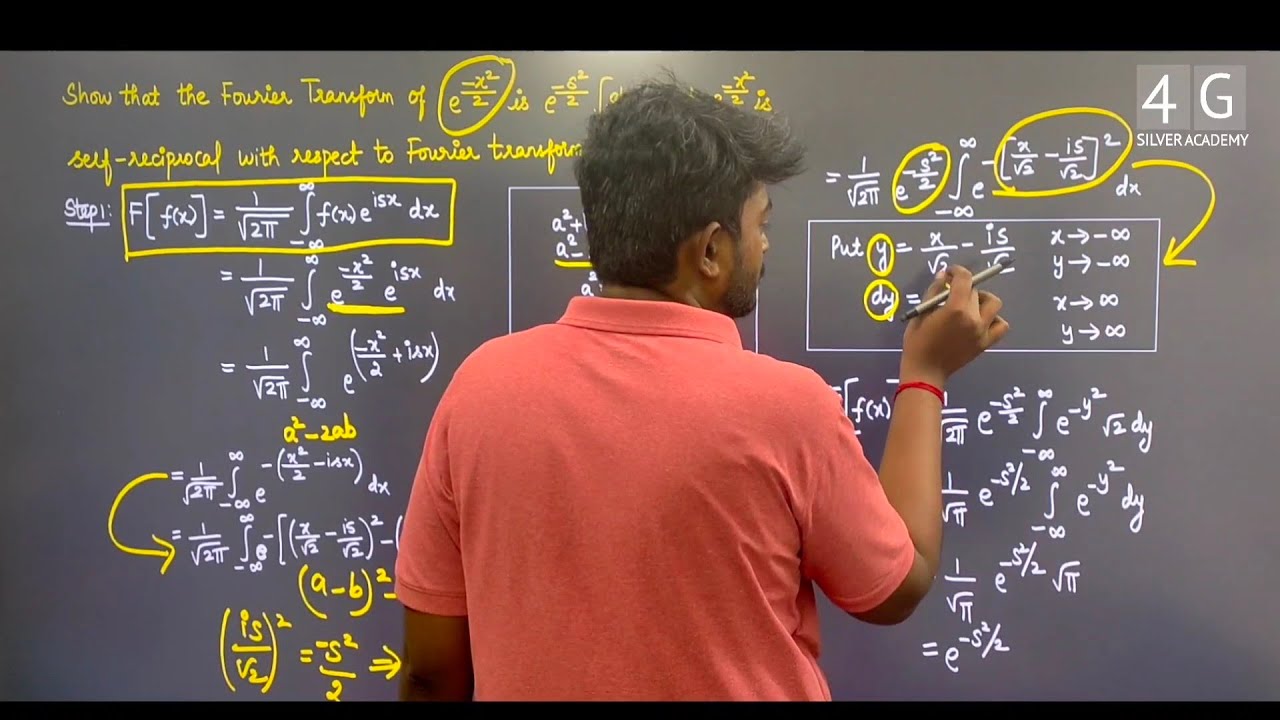 Show that the Fourier Transform of e^{-x²/2} is e^{-s²/2} e^{-x²/2} is
self-reciprocal with respect to Fourier transform
Step1: F[f(x)] = 1/√2π ∫_{-∞}^{∞} f(x) e^{isx} dx
= 1/√2π ∫_{-∞}^{∞} e^{-x²/2} e^{isx} dx
= 1/√2π ∫_{-∞}^{∞} e^{(-x²/2 + isx)}
a²-2ab
= 1/√2π ∫_{-∞}^{∞} e^{-(x²/2 - isx)} dx
= 1/√2π ∫_{-∞}^{∞} e^{-[(x/√2 - is/√2)² - (
(a-b)² =
(is/√2)² = -s²/2 ⇒
a²+
a²-
a²
4G
SILVER ACADEMY
= 1/√2π e^{-s²/2} ∫_{-∞}^{∞} e^{-[x/√2 - is/√2]²} dx
Put y = x/√2 - is/√2 x→-∞
y→-∞
dy = x→∞
y→∞
[f(x) 1/√2π e^{-s²/2} ∫_{-∞}^{∞} e^{-y²} √2 dy
1/√π e^{-s²/2} ∫_{-∞}^{∞} e^{-y²} dy
1/√π e^{-s²/2} √π
= e^{-s²/2}